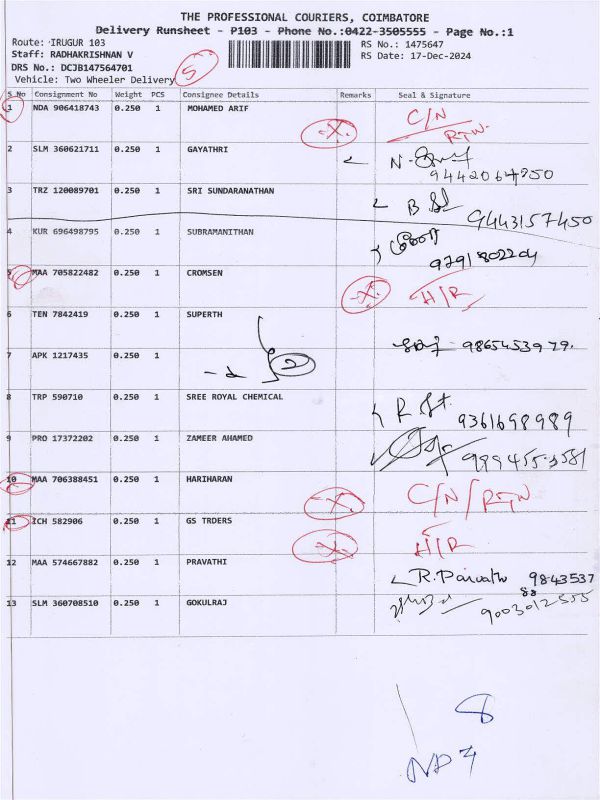 THE PROFESSIONAL COURIERS, COIMBATORE
Delivery Runsheet - P103 - Phone No.:0422-3505555 - Page No.:1
Route: IRUGUR 103
RS No.: 1475647
Staff: RADHAKRISHNAN V
RS Date: 17-Dec-2024
DRS No.: DCJB147564701
Vehicle: Two Wheeler Delivery
5
S No Consignment No Weight PCS Consignee Details Remarks Seal & Signature
1 NDA 906418743 0.250 1 MOHAMED ARIF -X. C/N
RTN.
2 SLM 360621711 0.250 1 GAYATHRI
3 TRZ 120089701 0.250 1 SRI SUNDARANATHAN
9443157450
4 KUR 696498795 0.250 1 SUBRAMANITHAN
9791802204
5 MAA 705822482 0.250 1 CROMSEN -X. H/R
6 TEN 7842419 0.250 1 SUPERTH 9865453979.
7 APK 1217435 0.250 1 2
8 TRP 590710 0.250 1 SREE ROYAL CHEMICAL 9361698989
9 PRO 17372202 0.250 1 ZAMEER AHAMED
10 MAA 706388451 0.250 1 HARIHARAN -X. C/N/RTN
11 ICH 582906 0.250 1 GS TRDERS -X. H/R
12 MAA 574667882 0.250 1 PRAVATHI R. Parvathi 9843537
88
13 SLM 360708510 0.250 1 GOKULRAJ 9003012555
8
ND 7